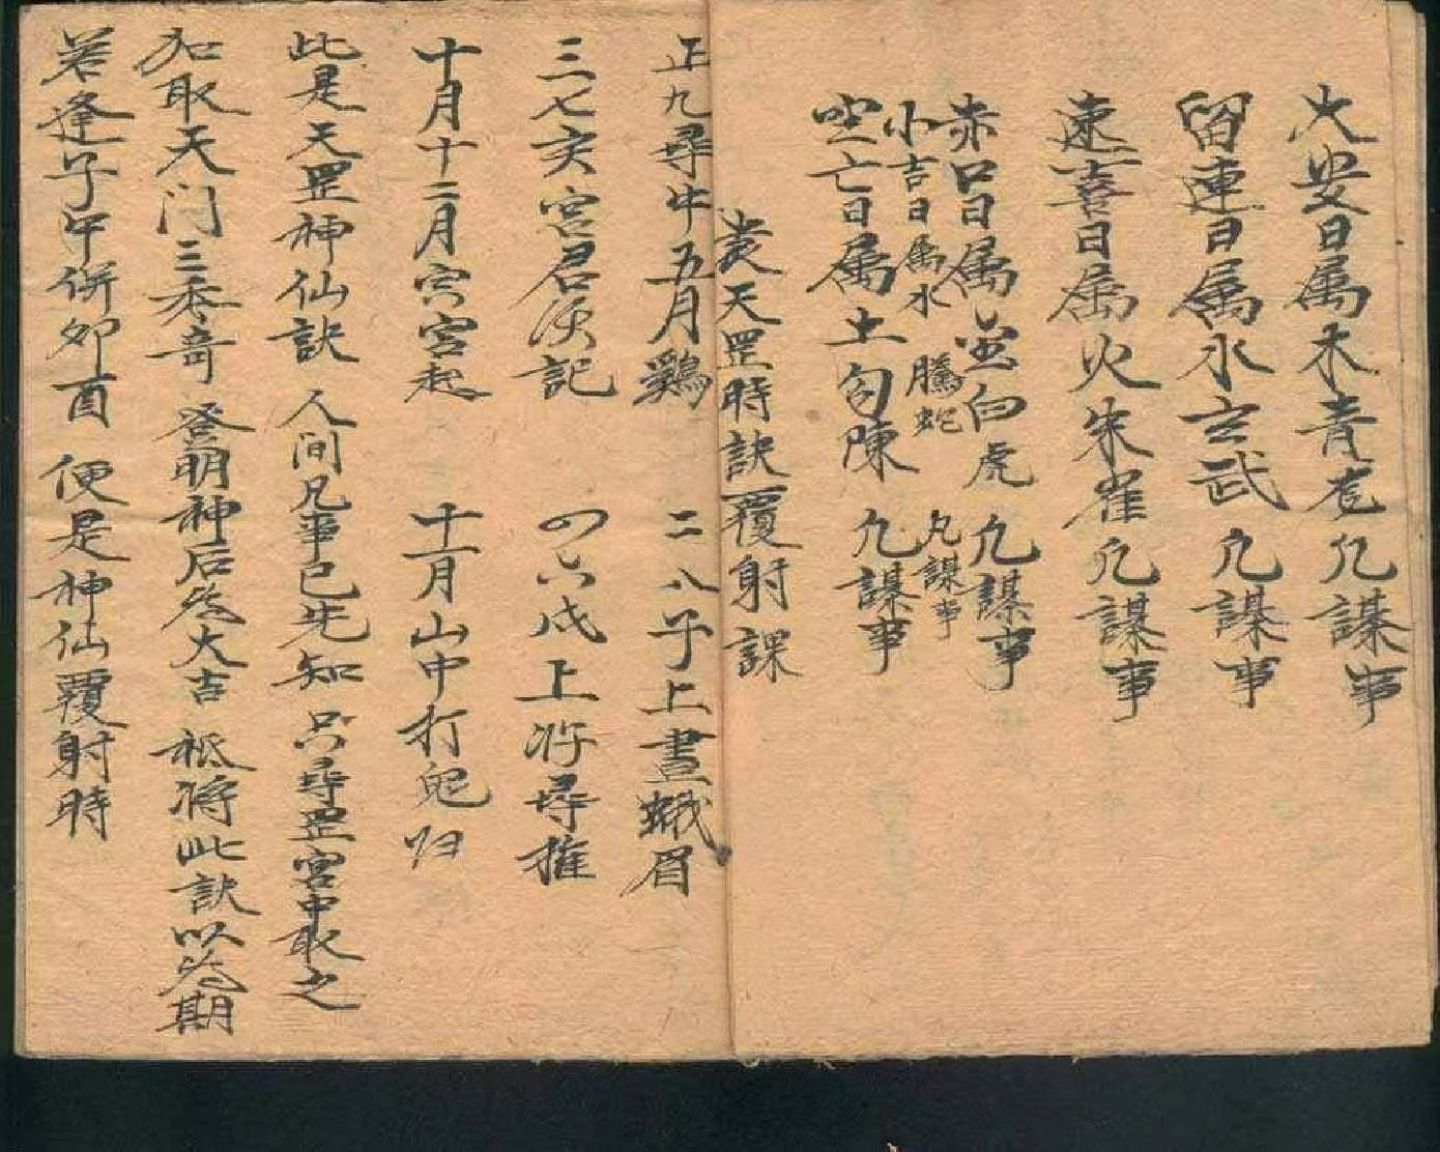 大安日属木青虎凢謀事
留連日属水玄武凢謀事
速喜日属火朱雀凢謀事
赤口日属金白虎凢謀事
小吉日属水騰蛇凢謀事
空亡日属土勾陳凢謀事
天罡時訣覆射課
正九尋牛五月鷄 二八子上畫蛾眉
三七亥宮君須記 四六戌上将尋推
十月十二月宮起 十一月山中打鬼归
此是天罡神仙訣 人间凡事已先知 只尋罡宮中取之
加取天门三奇 登明神后大吉 祗将此訣以為期
若逢子午併卯酉 便是神仙覆射時